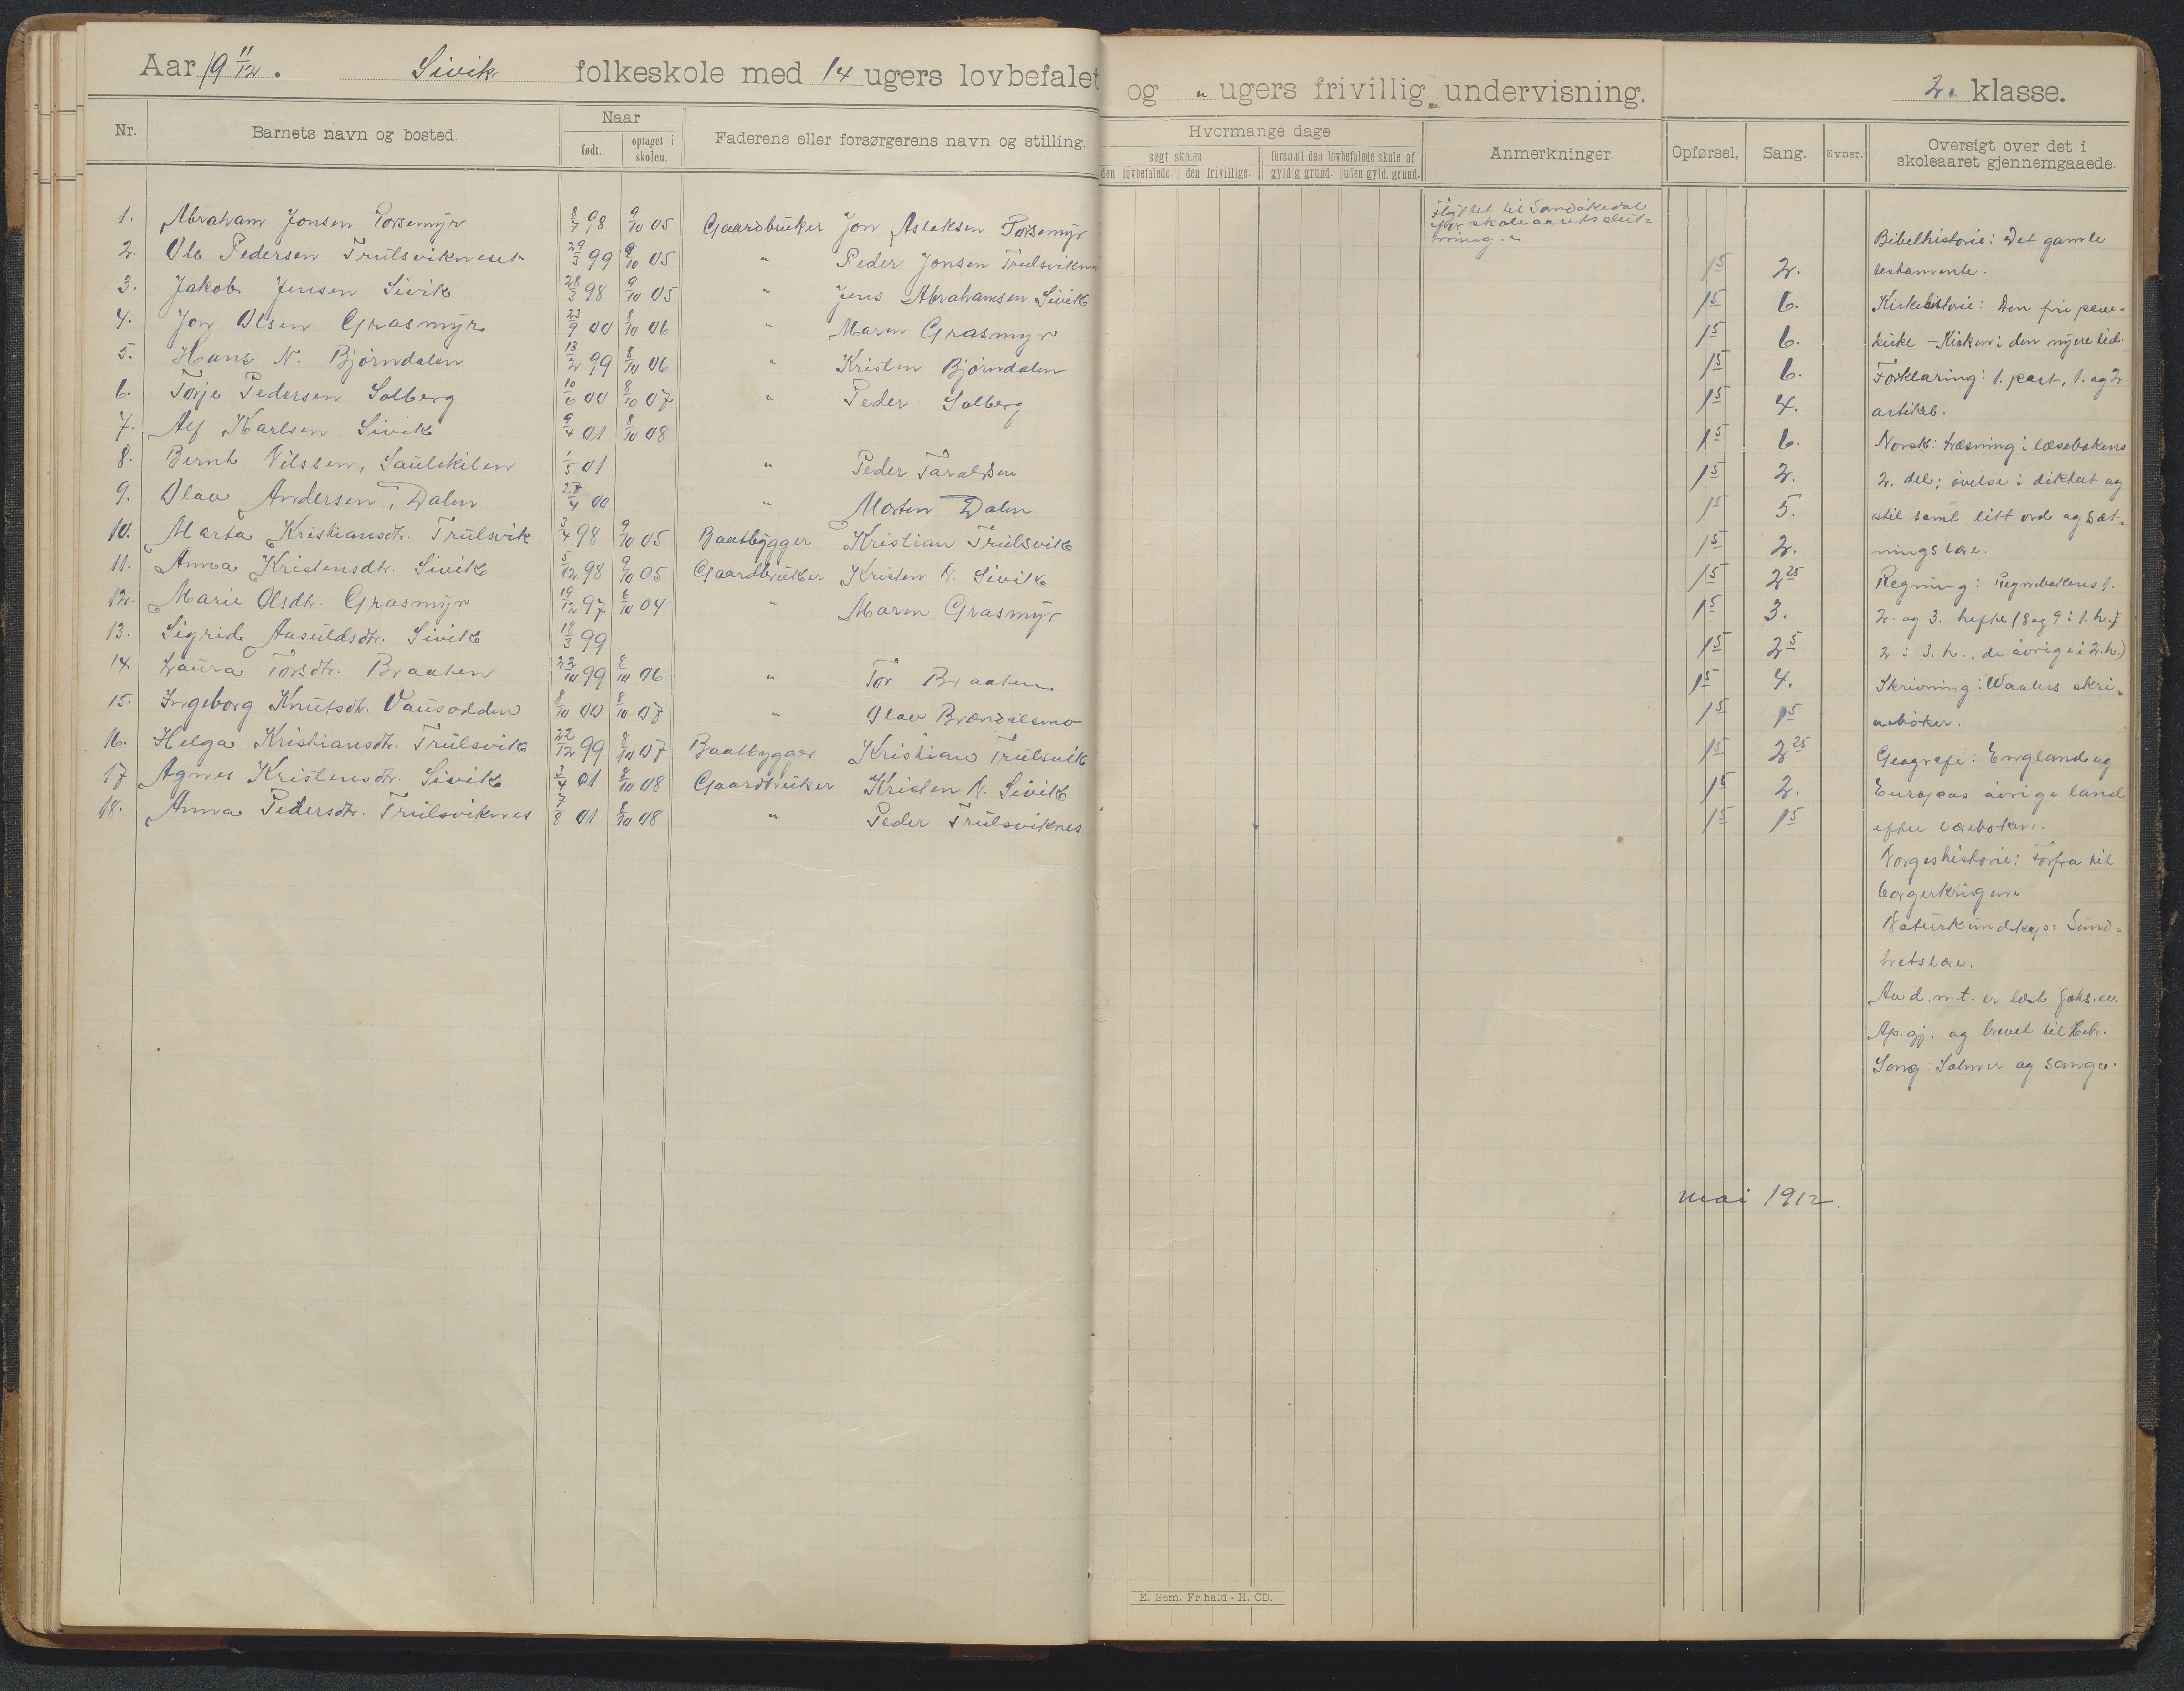 Aar 19 11/12. Sivik folkeskole med 14 ugers lovbefalet og „ ugers frivillig undervisning. 2. klasse.
Nr. Barnets navn og bosted. Naar født. optaget i skolen. Faderens eller forsørgerens navn og stilling. Hvormange dage søgt skolen den lovbefalede den frivillige. forsømt den lovbefalede skole af gyldig grund. uden gyld. grund. Anmerkninger. Opførsel. Sang. Evner. Oversigt over det i skoleaaret gjennemgaaede.
1. Abraham Jonsen Porsemyr 8/7 98 9/10 05 Gaardbruker Jon Aslaksen Porsemyr Flyttet til Sandøkedal før skoleaarets slut-
2. Ole Pedersen Trulsvikneset 29/3 99 9/10 05 " Peder Jonsen Trulsvikn 1 5 2.
3. Jakob Jensen Sivik 28/3 98 9/10 05 " Jens Abrahamsen Sivik 1 5 6.
4. Jon Olsen Grasmyr 23/9 00 8/10 06 " Maren Grasmyr 1 5 6.
5. Hans N. Bjørndalen 13/2 99 8/10 06 " Kristen Bjørndalen 1 5 6.
6. Torje Pedersen Solberg 10/6 00 8/10 07 " Peder Solberg 1 5 4.
7. Alf Karlsen Sivik 9/4 01 8/10 08 1 5 6.
8. Bernt Nilssen, Saulekilen 1/5 01 " Peder Taraldsen 1 5 2.
9. Olav Andersen, Dalen 28/4 00 " Morten Dalen 1 5 5.
10. Marta Kristiansdtr. Trulsvik 3/4 98 9/10 05 Baatbygger Kristian Trulsvik 1 5 2.
11. Anna Kristensdtr. Sivik 5/12 98 9/10 05 Gaardbruker Kristen N. Sivik 1 5 2 25
12. Marie Olsdtr. Grasmyr 19/12 97 6/10 04 " Maren Grasmyr 1 5 3.
13. Sigrid Aasuldsdtr. Sivik 18/3 99 1 5 2 5
14. Laura Torsdtr. Braaten 22/10 99 8/10 06 " Tor Braaten 1 5 4.
15. Ingeborg Knutsdtr. Vausodden 8/10 00 8/10 07 " Olav Brændalsmo 1 5 1 5
16. Helga Kristiansdtr. Trulsvik 22/12 99 8/10 07 Baatbygger Kristian Trulsvik 1 5 2 25
17 Agnes Kristensdtr. Sivik 3/4 01 8/10 08 Gaardbruker Kristen N. Sivik 1 5 2.
18. Anna Pedersdtr. Trulsviknes 7/8 01 8/10 08 " Peder Trulsviknes 1 5 1 5
Bibelhistorie: Det gamle
testamente.
Kirkehistorie: Den frie pave-
kirke – Kirken i den nyere tid.
Forklaring: 1. part, 1. og 2.
artikel.
Norsk: Læsning i læsebokens
2. del; øvelse i diktat og
stil samt litt ord og sæt-
ningslære.
Regning: Regnebokens 1.
2. og 3. hefte (8 og 9 i 1. h.,
2 i 3. h., de øvrige i 2. h.)
Skrivning: Waalers skri-
vebøker.
Geografi: England og
Europas øvrige land
efter læreboken.
Norgeshistorie: Forfra til
borgerkrigene
Naturkundskap: Sund-
hetslære.
Av d. n. t. er læst Johs. ev.
Ap. gj. og brevet til Hebr.
Sang: Salmer og sanger.
mai 1912.
E. Sem. Fr.hald - H. CD.